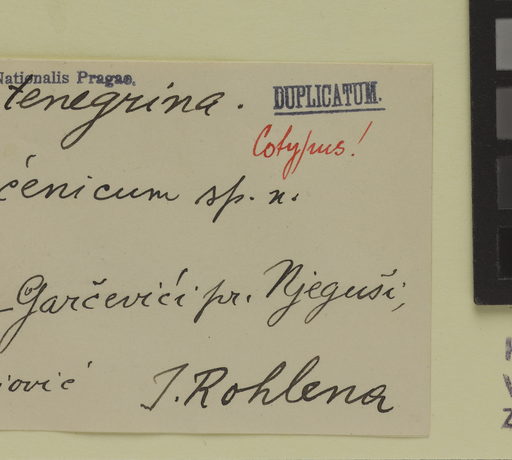 Nationalis Pragae.
tenegrina. DUPLICATUM.
Cotypus!
ćenicum sp. n.
Garčevići pr. Njeguši,
iović J. Rohlena